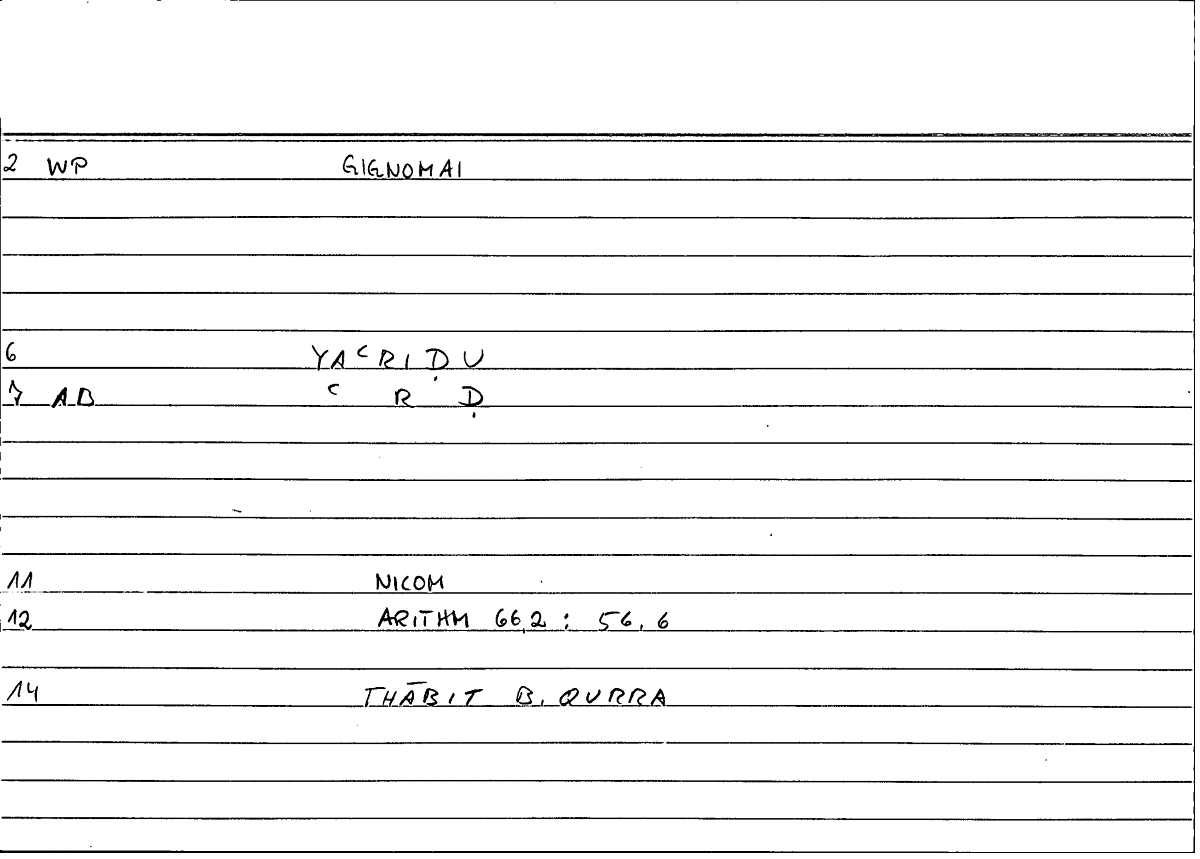 2 WP GIGNOMAI
6 YAʿRIḌU
7 AB ʿ R Ḍ
11 NICOM
12 ARITHM 66,2 : 56,6
14 THĀBIT B. QURRA